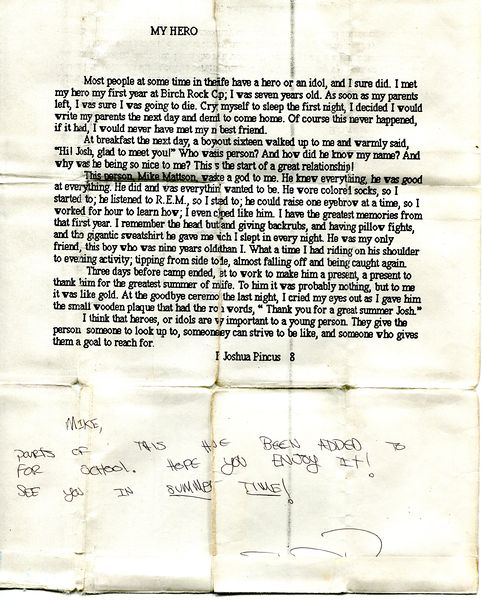 MY HERO
Most people at some time in their life have a hero or an idol, and I sure did. I met
my hero my first year at Birch Rock Cp; I was seven years old. As soon as my parents
left, I was sure I was going to die. Cry myself to sleep the first night, I decided I would
write my parents the next day and dem to come home. Of course this never happened,
if it had, I would never have met my n best friend.
At breakfast the next day, a boy out sixteen walked up to me and warmly said,
"Hi! Josh, glad to meet you!" Who was is person? And how did he know my name? And
why was he being so nice to me? This s the start of a great relationship!
This person, Mike Mattson, was e a god to me. He knew everything, he was good
at everything. He did and was everythin wanted to be. He wore colored socks, so I
started to; he listened to R.E.M., so I sted to; he could raise one eyebrow at a time, so I
worked for hour to learn how; I even ced like him. I have the greatest memories from
that first year. I remember the head but and giving backrubs, and having pillow fights,
and the gigantic sweatshirt he gave me ch I slept in every night. He was my only
friend, this boy who was nine years old than I. What a time I had riding on his shoulder
to evening activity; tipping from side to le, almost falling off and being caught again.
Three days before camp ended, et to work to make him a present, a present to
thank him for the greatest summer of m life. To him it was probably nothing, but to me
it was like gold. At the goodbye ceremo the last night, I cried my eyes out as I gave him
the small wooden plaque that had the ro words, " Thank you for a great summer Josh."
I think that heroes, or idols are v important to a young person. They give the
person someone to look up to, someone y can strive to be like, and someone who gives
them a goal to reach for.
Joshua Pincus 8
MIKE,
PARTS OF THIS HAVE BEEN ADDED TO
FOR SCHOOL. HOPE YOU ENJOY IT!
SEE YOU IN SUMMER TIME!